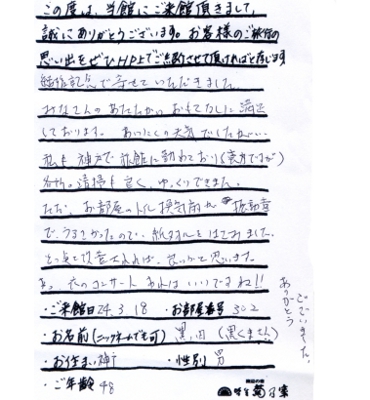 この度は、当館にご来館頂きまして、
誠にありがとうございます。お客様のご旅行の
思い出をぜひHP上でご紹介させて頂ければと存じます
結婚記念で寄せていただきました。
みなさんのあたたかいおもてなしに満足
しております。あいにくの天気でしたが…
私も神戸で旅館に勤めており(裏方ですが)
各所の清掃も良く、ゆっくりできました。
ただ、お部屋のトイレ換気扇が振動音
で、うるさかったので、紙タオルをはさみました。
ちょっと改善すれば、良いかと思います。
夜のコンサートあれはいいですね!!
・ご来館日24.3.18 ・お部屋番号302
・お名前(ニックネームでも可) 黒田(黒くまさん)
・お住まい神戸 ・性別 男
・ご年齢48
ありがとう
ございました。